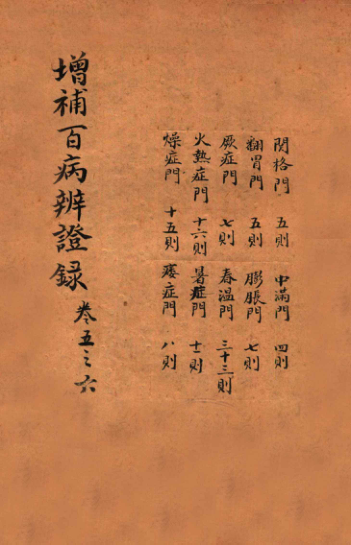 關格門 五則 中滿門 四則
翻胃門 五則 膨脹門 七則
厥症門 七則 春溫門 三十三則
火熱症門 十六則 暑症門 十一則
燥症門 十五則 痿症門 八則
增補百病辨證録 卷五之六